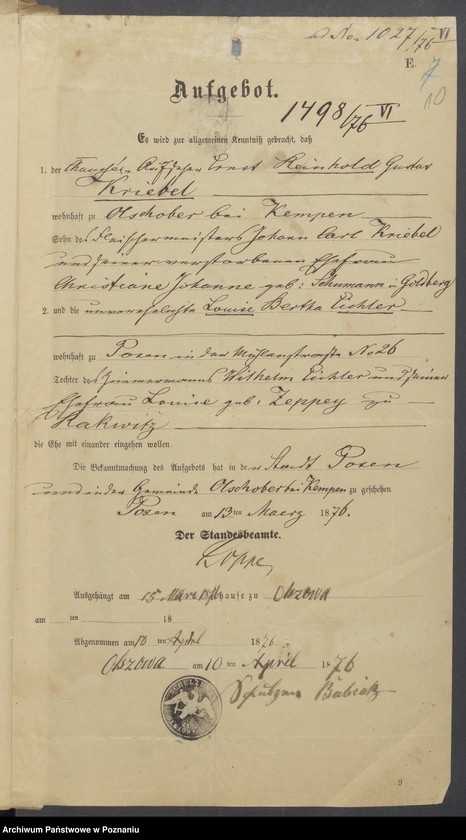 No. 1027/76 VI
E. 7
10
Aufgebot.
1498/76 VI
Es wird zur allgemeinen Kenntniß gebracht, daß
1. der Chaussee-Aufseher Ernst Reinhold Gustav
Kriebel
wohnhaft zu Olschober bei Kempen
Sohn des Fleischermeisters Johann Carl Kriebel
und seiner verstorbenen Ehefrau
Christiane Johanne geb: Schumann in Goldberg
2. und die unverehelichte Louise Bertha Eichler
wohnhaft zu Posen in der Mühlenstraße No 26
Tochter des Zimmermanns Wilhelm Eichler und seiner
Ehefrau Louise geb: Zeppey zu
Rakwitz
die Ehe mit einander eingehen wollen.
Die Bekanntmachung des Aufgebots hat in der Stadt Posen
und in der Gemeinde Olschober bei Kempen zu geschehen.
Posen am 13 ten Maerz 1876.
Der Standesbeamte.
Ausgehängt am 15 März 1876 hause zu Olszowa
am ten 18
Abgenommen am 10 ten April 1876
Olszowa am 10 ten April 1876
Schulzen Babiak
9
Archiwum Państwowe w Poznaniu